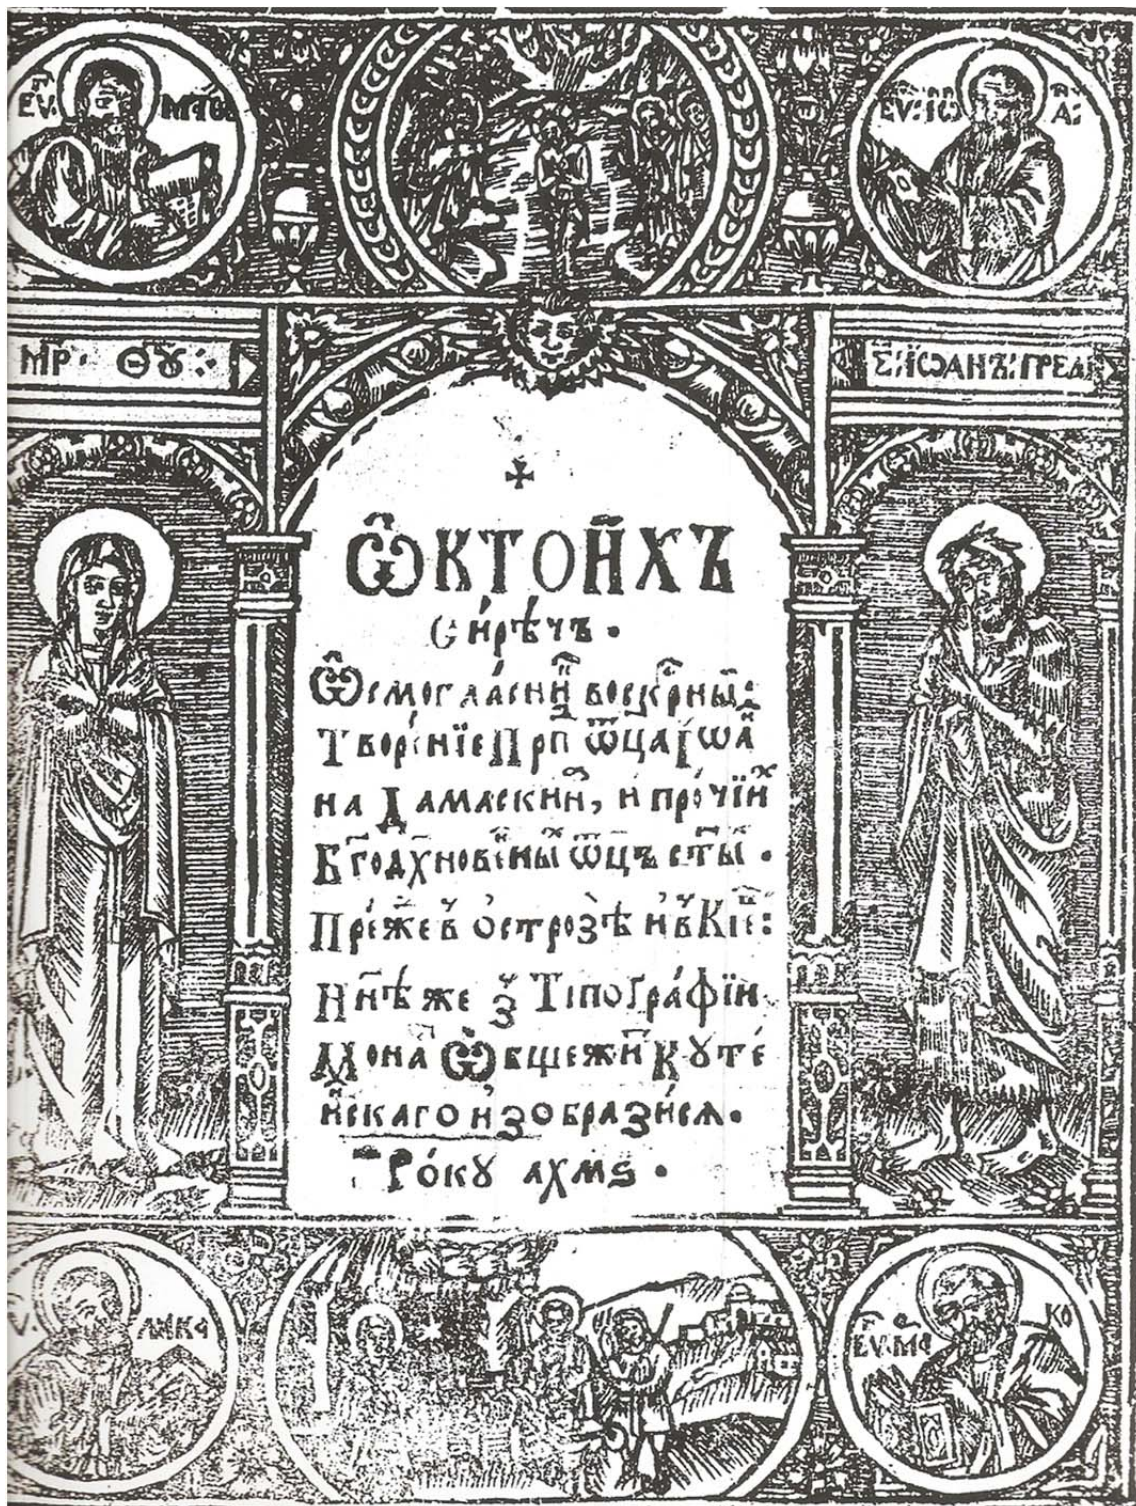 ЕѴ: МТѲ
ЕѴ: ІѠ А:
МР ѲꙊ
С: ІѠАНЪ: ПРЕД
Ѡ҆КТОИ́ХЪ
Си́рѣчъ.
Ѡ҆смогла́сник воскрⷭ҇ный:
Творе́нїе Прпⷣ ѿца Іѡ́а
на Дамаскинⷶ, и҆ про́чїиⷯ
Бг҃одх҃новеⷩ҇ныⷯ ѿц҃ъ ст҃ыⷯ.
Пре́жⷣе в Остро́зѣ и҆ в Кіеⷡ҇:
Нн҃ѣ же з Тѵпоґра́фїи
Монаⷭ҇ Ѡ҆бщежиⷮ Кꙋте́
и҆нскаго и҆зобрази́сѧ.
Ро́кꙋ ахмѕ.
ЛꙊКА
ЕѴ: МАⷬ КО